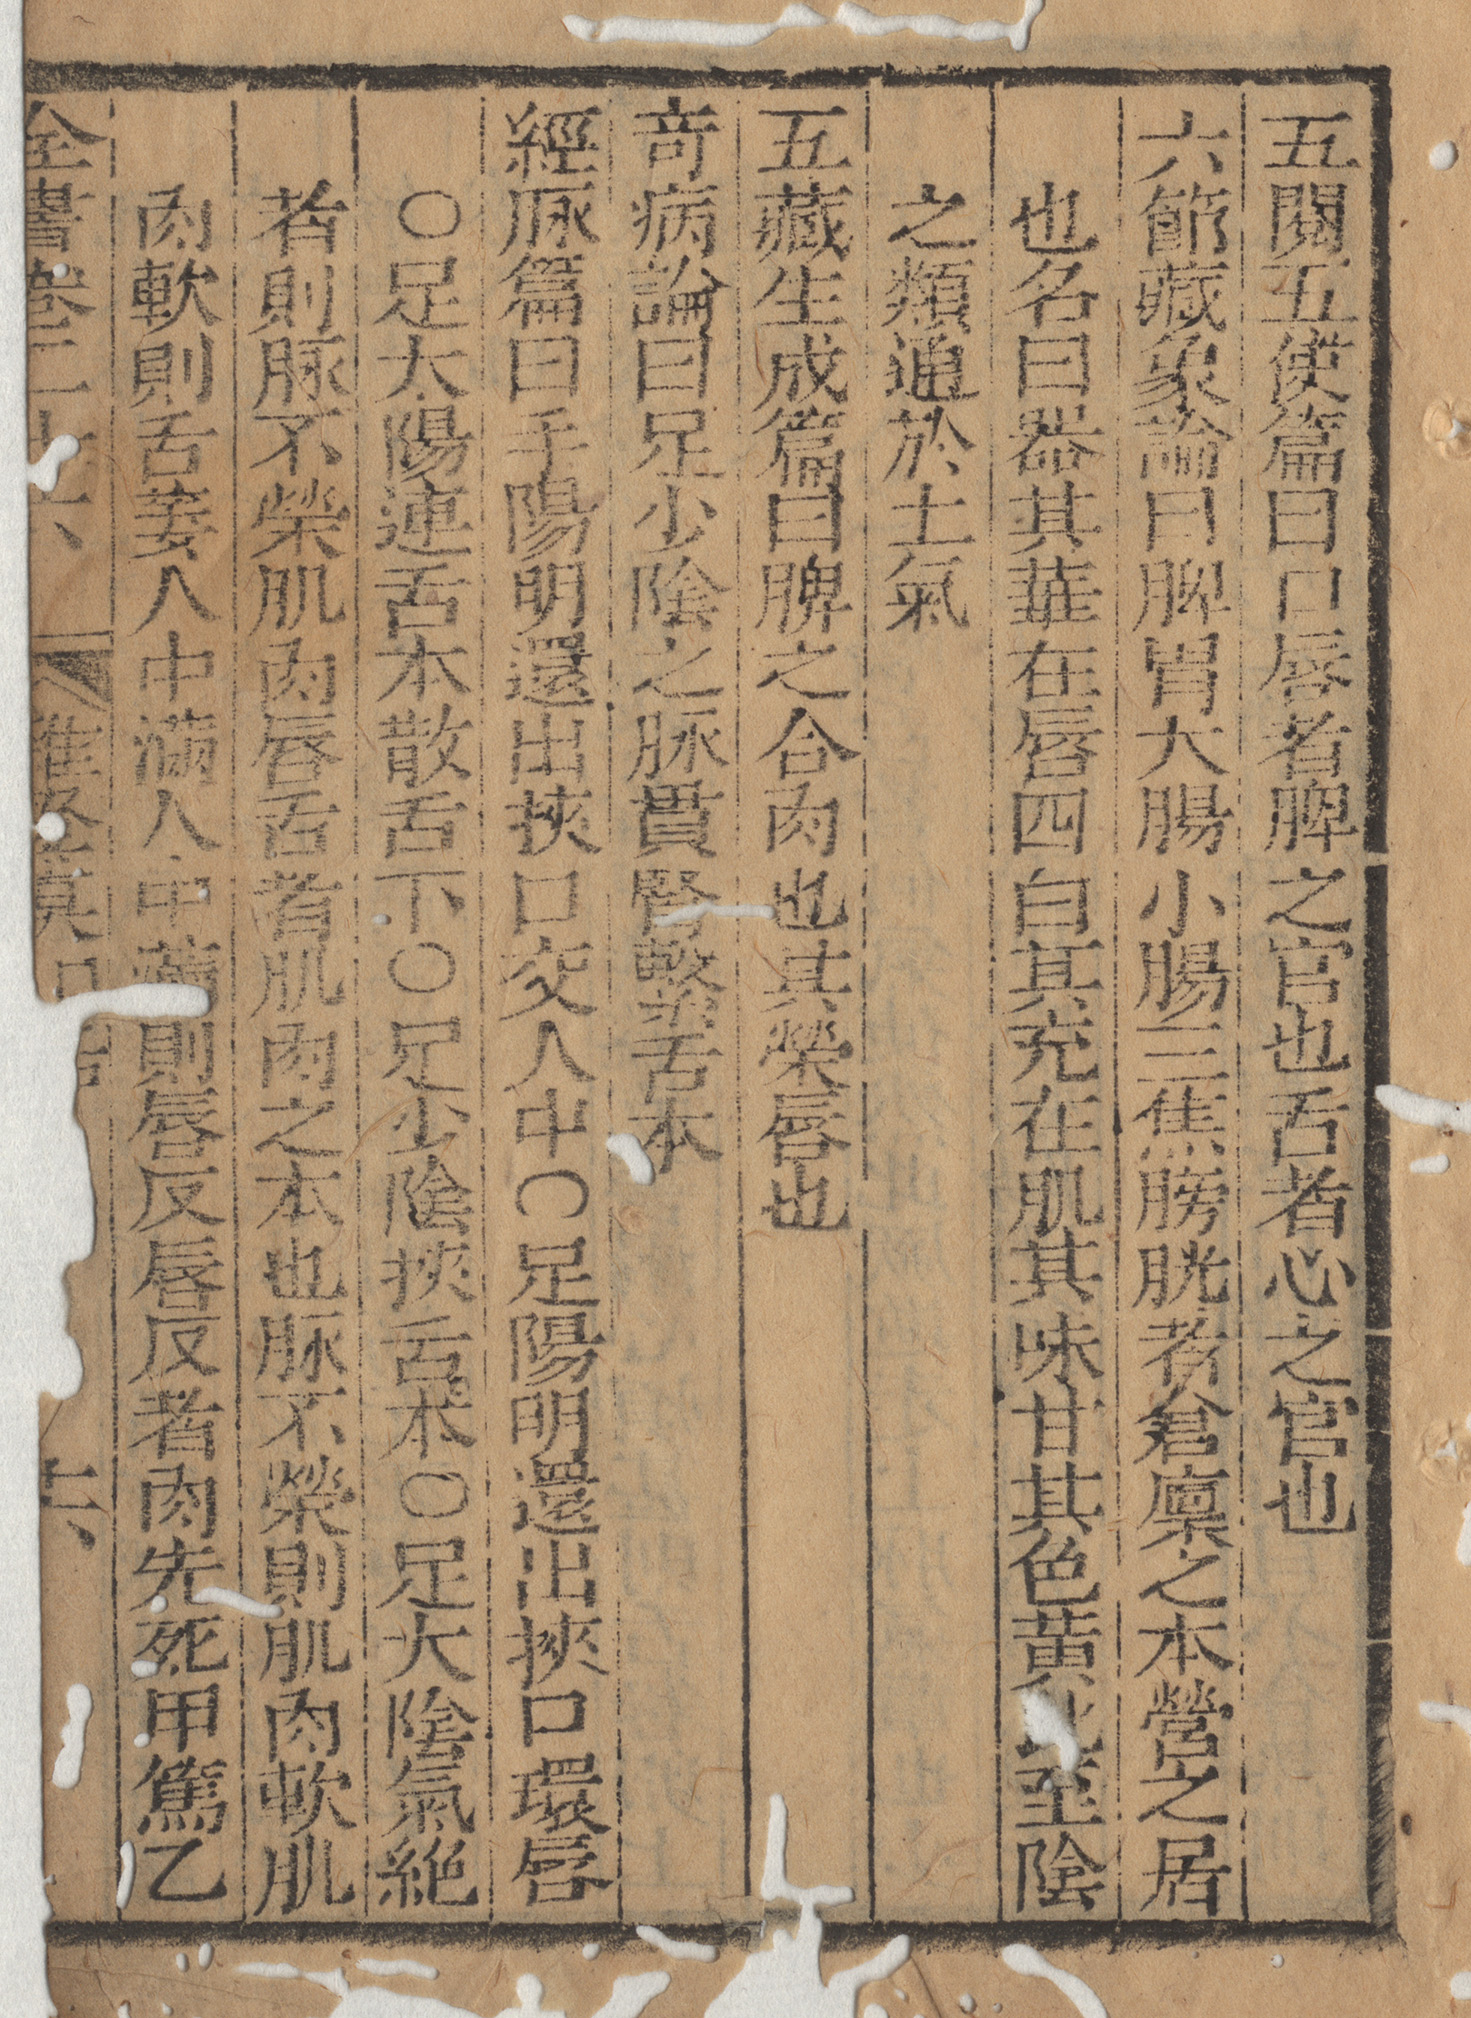 五閱五使篇曰口唇者脾之官也舌者心之官也
六節藏象論曰脾胃大腸小腸三焦膀胱者倉廩之本營之居
也名曰器其華在唇四白其充在肌其味甘其色黃此至陰
之類通於土氣
五藏生成篇曰脾之合肉也其榮唇也
奇病論曰足少陰之脉貫腎繫舌本
經脉篇曰手陽明還出挾口交人中〇足陽明還出挾口環唇
〇足太陽連舌本散舌下〇足少陰挾舌本〇足大陰氣絶
者則脉不榮肌肉唇舌者肌肉之本也脉不榮則肌肉軟肌
肉軟則舌萎人中滿人中滿則唇反唇反者肉先死甲篤乙
全書卷二十六 雜 謨 口 十六